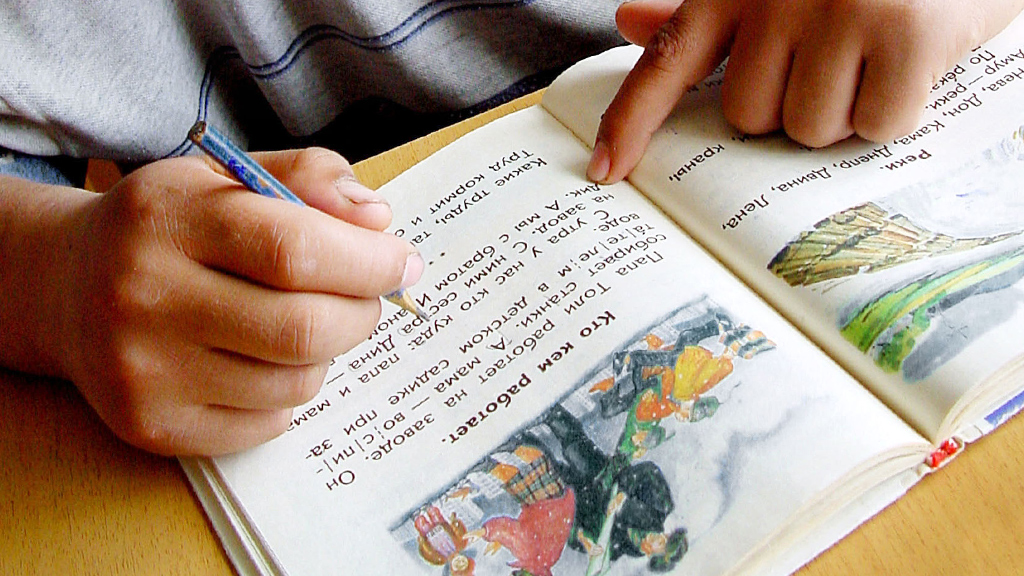 Кто кем работает.
Папа Толи работает на заводе. Он
собирает станки. А мама — во|с|пи|-
та|те|ле|м в детском садике при за-
воде. С утра у нас кто куда: папа и мама
на завод. С ними сестра Дина —
дик. А мы с братом
Какие труды, та
Труд кормит и о
Реки.
Нева, Дон, Кама, Днепр, Двина, Лена,
Амур — реки.
По река
краны,